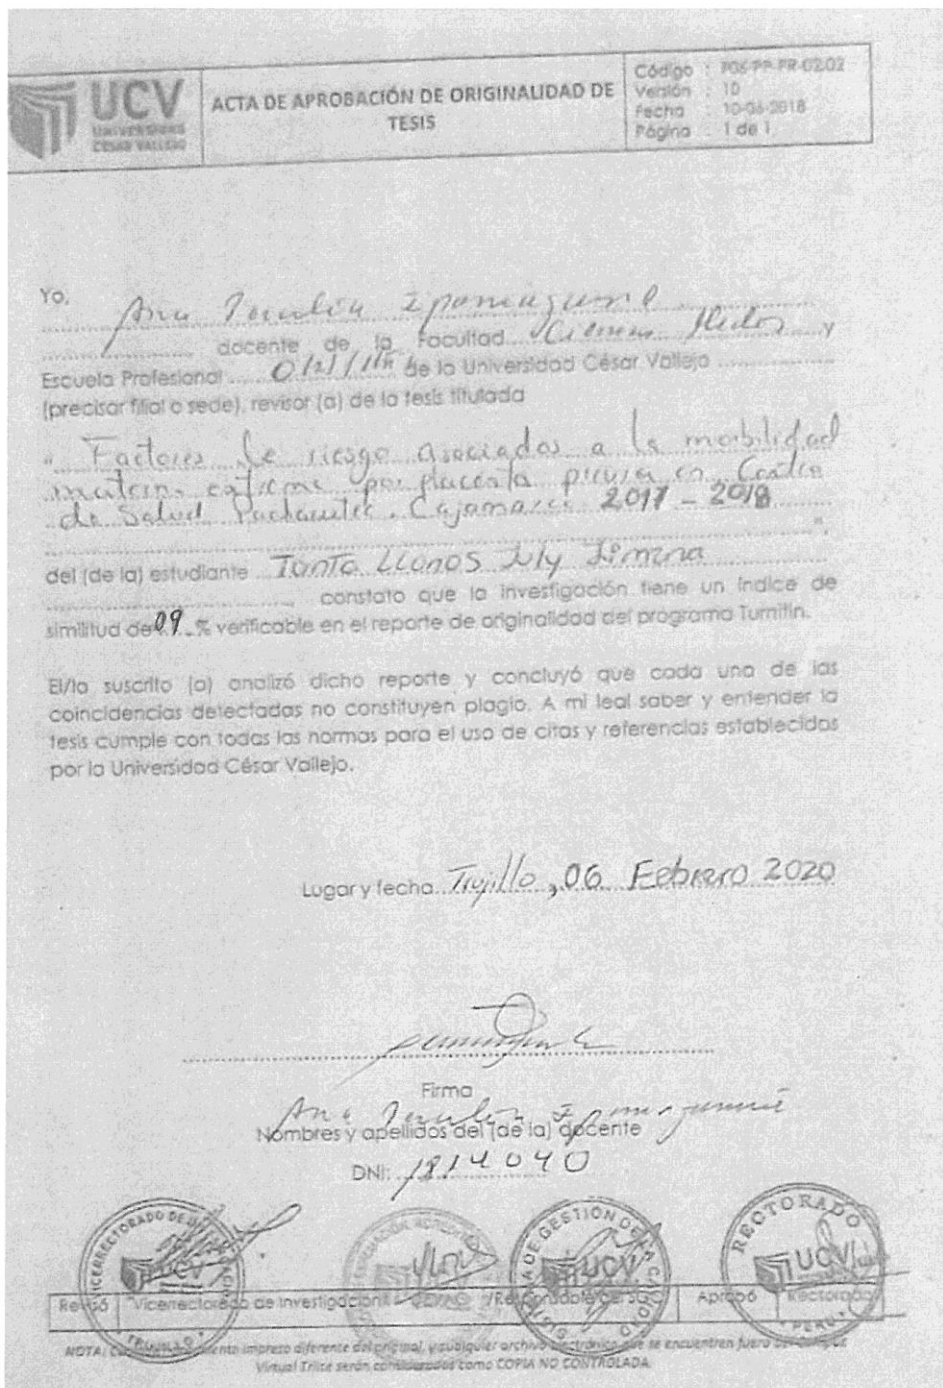 UCV
UNIVERSIDAD
CÉSAR VALLEJO
ACTA DE APROBACIÓN DE ORIGINALIDAD DE
TESIS
Código : F06-PP-PR-02.02
Versión : 10
Fecha : 10-06-2018
Página : 1 de 1
Yo, Ana
docente de la Facultad Ciencias y
Escuela Profesional de la Universidad César Vallejo
(precisar filial o sede), revisor (a) de la tesis titulada
" Factores de riesgo asociados a la morbilidad
materna extrema por placenta previa en Centro
de Salud Pachacutec. Cajamarca 2017 - 2018
",
del (de la) estudiante Tanta LLanos July Jimena
constato que la investigación tiene un índice de
similitud de 09 % verificable en el reporte de originalidad del programa Turnitin.
El/la suscrito (a) analizó dicho reporte y concluyó que cada una de las
coincidencias detectadas no constituyen plagio. A mi leal saber y entender la
tesis cumple con todas las normas para el uso de citas y referencias establecidas
por la Universidad César Vallejo.
Lugar y fecha Trujillo, 06 Febrero 2020
Firma
Ana
Nombres y apellidos del (de la) docente
DNI: 1814040
VICERRECTORADO DE
UCV
TRUJILLO
GESTIÓN DE LA
UCV
RECTORADO
UCV
PERU
Revisó Vicerrectorado de Investigación / Responsable del SGC Aprobó Rectorado
NOTA: impreso diferente del original, y cualquier archivo electrónico que se encuentren fuera del Campus
Virtual Trilce serán considerados como COPIA NO CONTROLADA.